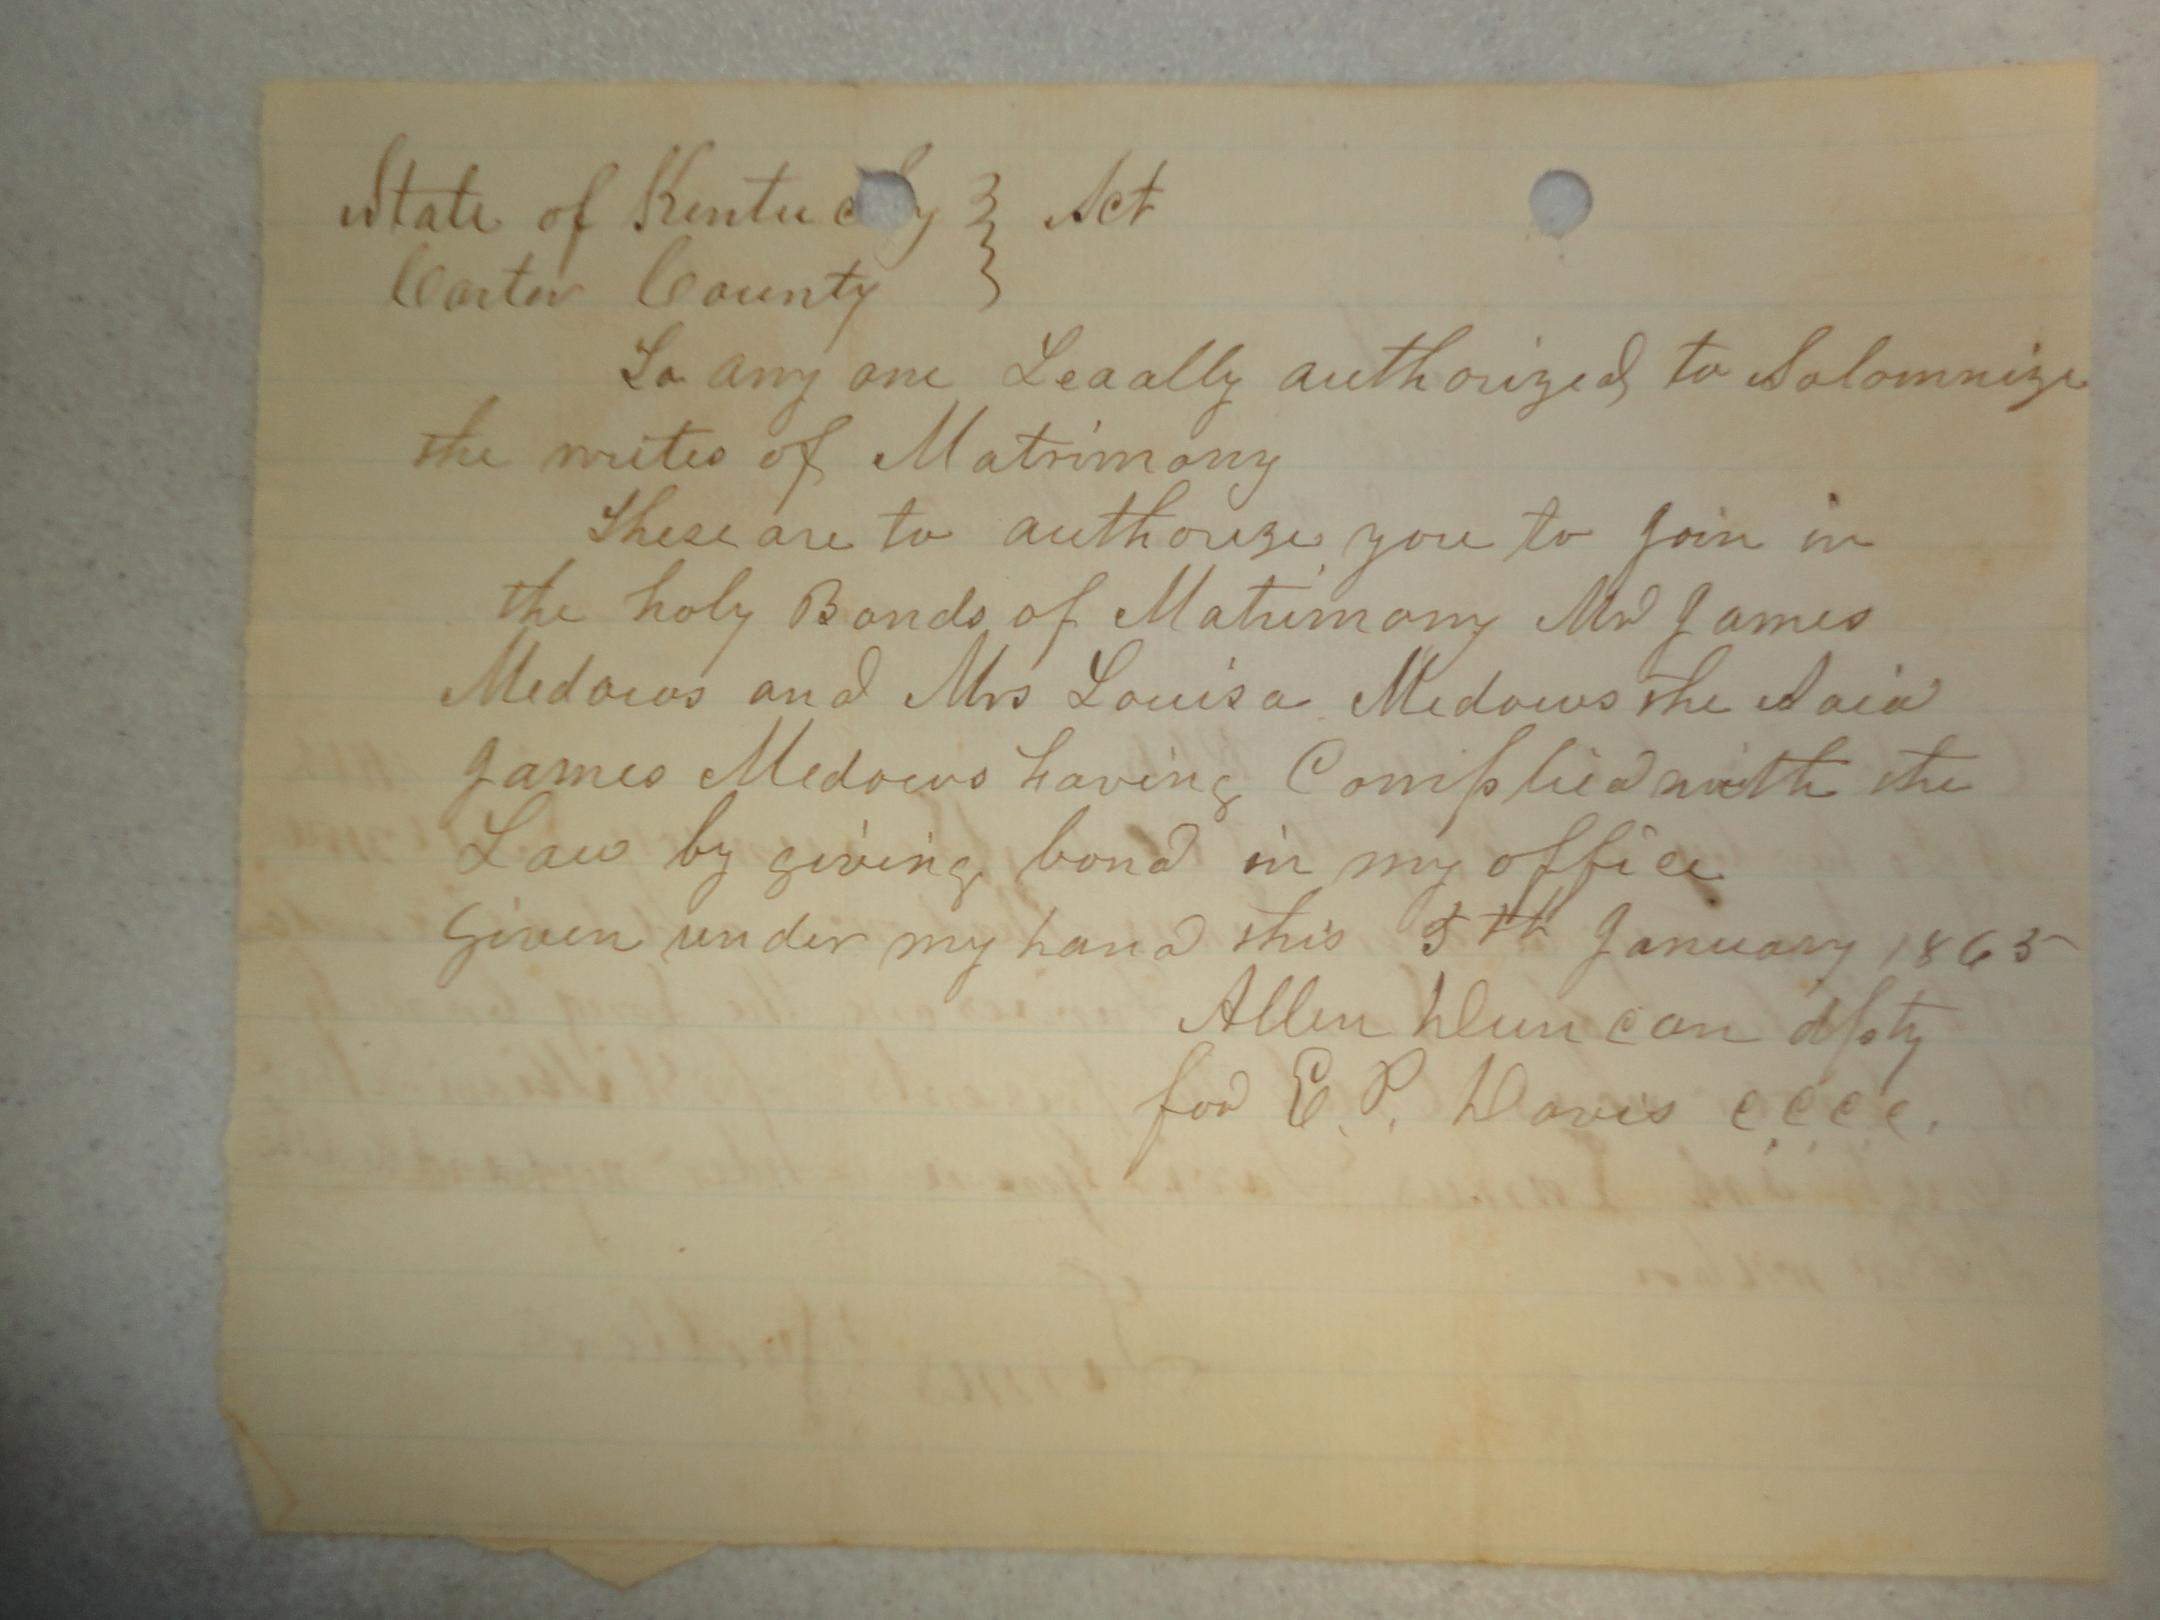 State of Kentucky } Sct
Carter County }
To any one Leaally authorized to Solomnize
the writes of Matrimony
These are to authorize you to join in
the holy Bonds of Matrimony Mr James
Medows and Mrs Louisa Medows the Said
James Medows having Complied with the
Law by giving bond in my office
Given under my hand this 5th January 1865
Allen Duncan dpty
for E. P. Davis C.C.C.C.